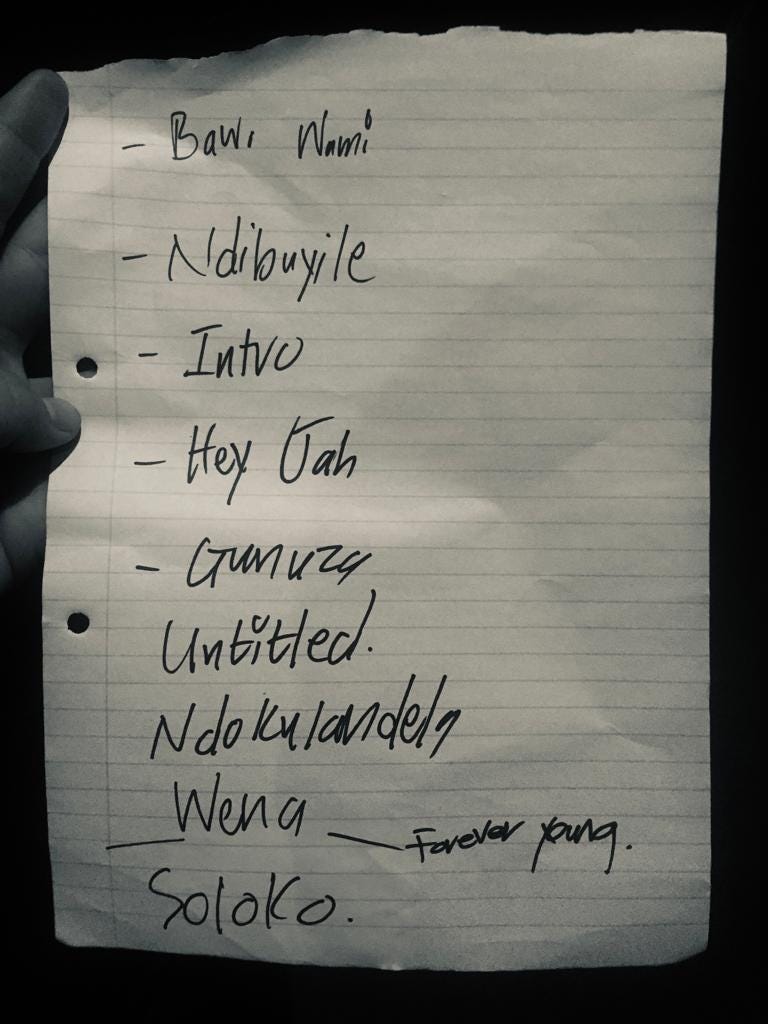 - Bawi Wami
- Ndibuyile
- Intro
- Hey Jah
- Gunuza
Untitled.
Ndokulandela
Wena — Forever young.
Soloko.